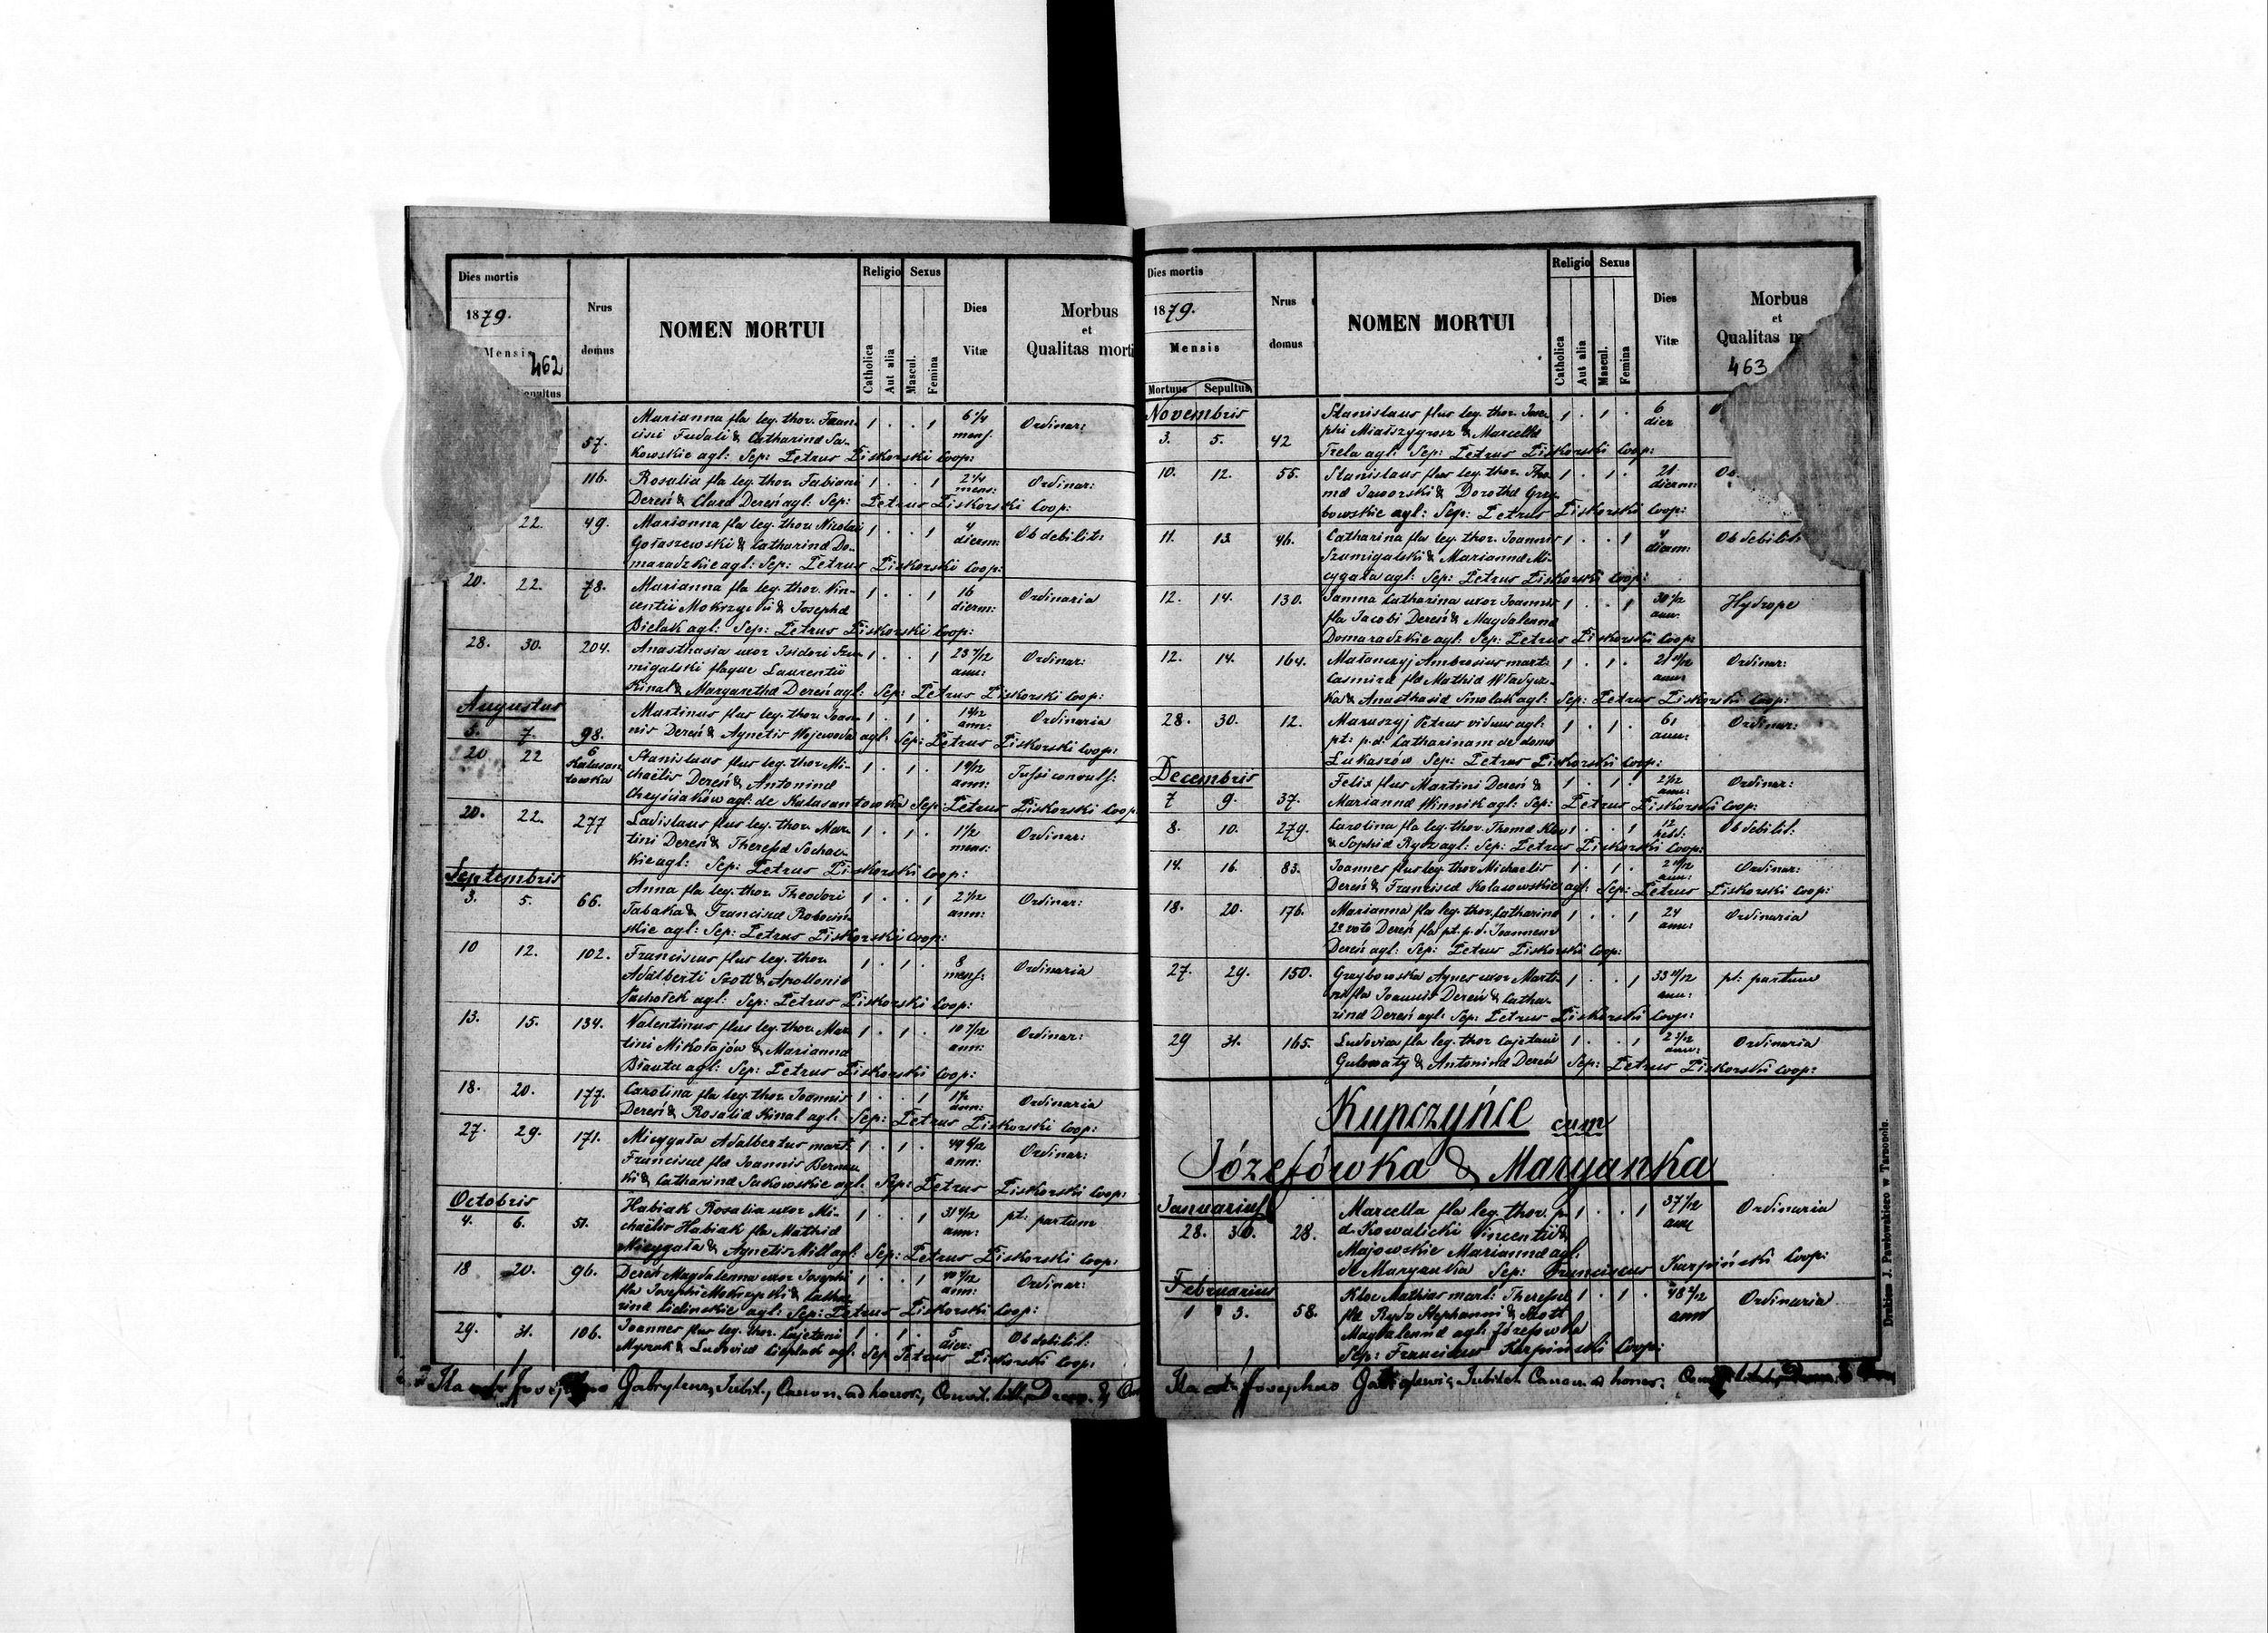 Dies mortis
1879.
Mensis
462
Sepultus
Nrus
domus
NOMEN MORTUI
Religio
Catholica
Aut alia
Sexus
Mascul.
Femina
Dies
Vitæ
Morbus
et
Qualitas morti
57. Marianna fla leg. thor. Fran- 1 . . 1 6 1/4 mens. Ordinar:
cisci Fudali & Catharinæ Sa-
kowskie agl: Sep: Petrus Piskorski Coop:
116. Rosalia fla leg. thor. Fabiani 1 . . 1 2 1/4 mens: Ordinar:
Dereń & Clara Dereń agl: Sep: Petrus Piskorski Coop:
22. 49. Marianna fla leg. thor. Nicolai 1 . . 1 4 dierm: Ob debilit:
Gołaszewski & Catharinæ Do-
maradzkie agl: Sep: Petrus Piskorski Coop:
20. 22. 78. Marianna fla leg. thor. Vin- 1 . . 1 16 dierm: Ordinaria
centii Mokrzycki & Josephæ
Bielak agl: Sep: Petrus Piskorski Coop:
28. 30. 204. Anasthasia uxor Isidori Szu- 1 . . 1 23 7/12 ann: Ordinar:
migalski flaque Laurentii
Kinal & Margarethæ Dereń agl: Sep: Petrus Piskorski Coop:
Augustus
5. 7. 98. Martinus flus leg. thor. Joan- 1 . 1 . ann: Ordinaria
nis Dereń & Agnetis Wojewoda agl: Sep: Petrus Piskorski Coop:
20 22 6 Stanislaus flus leg. thor. Mi- 1 . 1 . ann: Tussi convuls:
chaëlis Dereń & Antoninæ
Chryściaków agl: de Kalasantowka Sep: Petrus Piskorski Coop:
20. 22. 277 Ladislaus flus leg. thor. Mar- 1 . 1 . 1 1/2 mens: Ordinar:
tini Dereń & Theresæ Sochac-
kie agl: Sep: Petrus Piskorski Coop:
Septembris
3. 5. 66. Anna fla leg. thor. Theodori 1 . . 1 2 1/12 ann: Ordinar:
Tabaka & Franciscæ Robociń-
skie agl: Sep: Petrus Piskorski Coop:
10 12. 102. Franciscus flus leg. thor. 1 . 1 . 8 mens: Ordinaria
Adalberti Szott & Apolloniæ
Pachołek agl: Sep: Petrus Piskorski Coop:
13. 15. 134. Valentinus flus leg. thor. Mar- 1 . 1 . 10 7/12 ann: Ordinar:
tini Mikołajów & Mariannæ
Błauta agl: Sep: Petrus Piskorski Coop:
18. 20. 177. Carolina fla leg. thor. Joannis 1 . . 1 1 1/2 ann: Ordinaria
Dereń & Rosaliæ Kinal agl: Sep: Petrus Piskorski Coop:
27. 29. 171. Micygała Adalbertus marit: 1 . 1 . 49 6/12 ann: Ordinar:
Franciscæ flæ Joannis Bernac-
ki & Catharinæ Sakowskie agl: Sep: Petrus Piskorski Coop:
Octobris
4. 6. 51. Habiak Rosalia uxor Mi- 1 . . 1 ann: pt: partum
chaëlis Habiak fla Mathiæ
Micygała & Agnetis Mill agl: Sep: Petrus Piskorski Coop:
18 20. 96. Dereń Magdalenna uxor Josephi 1 . . 1 ann: Ordinar:
fla Josephi Mokrzycki & Catha-
rinæ agl: Sep: Petrus Piskorski Coop:
29. 31. 106. Joannes flus leg. thor. Cajetani 1 . 1 . 5 dier: Ob debilit:
Myszak & Ludovicæ Cieplach agl: Sep Petrus Piskorski Coop:
Jubil., Canon. ad honor.,
Dies mortis
1879.
Mensis
Mortuus
Sepultus
Nrus
domus
NOMEN MORTUI
Religio
Catholica
Aut alia
Sexus
Mascul.
Femina
Dies
Vitæ
Morbus
et
Qualitas
463
Novembris
3. 5. 42 Stanislaus flus leg. thor. Jose- 1 . 1 . 6 dier
phi & Marcellæ
Trela agl: Sep: Petrus Piskorski Coop:
10. 12. 55. Stanislaus flus leg. thor. Tho- 1 . 1 . 21 dierm:
mæ Jaworski & Dorothæ Grzy-
bowskie agl: Sep: Petrus Piskorski Coop:
11. 13 46. Catharina fla leg. thor. Joannis 1 . . 1 4 dierm: Ob debilit:
Szumigalski & Mariannæ Mi-
cygała agl: Sep: Petrus Piskorski Coop:
12. 14. 130. Janna Catharina uxor Joannis 1 . . 1 ann: Hydrope
fla Jacobi Dereń & Magdalenna
Domaradzkie agl: Sep: Petrus Piskorski Coop:
12. 14. 164. Małanczyj Ambrosius marit: 1 . 1 . 21 10/12 ann: Ordinar:
Casimiræ flæ Mathiæ Władycz-
ka & Anasthasiæ Smolak agl: Sep: Petrus Piskorski Coop:
28. 30. 12. Maruszyj Petrus viduus agl: 1 . 1 . 61 ann: Ordinar:
pt: p.d: Catharinam de domo
Łukaszów Sep: Petrus Piskorski Coop:
Decembris
7 9. 37. Felix flus Martini Dereń & 1 . 1 . 2 1/12 ann: Ordinar:
Mariannæ Winnik agl: Sep: Petrus Piskorski Coop:
8. 10. 279. Carolina fla leg. thor. Thomæ Kloc 1 . . 1 12 hebd: Ob debilit:
& Sophiæ Rydz agl: Sep: Petrus Piskorski Coop:
14. 16. 83. Joannes flus leg. thor. Michaelis 1 . 1 . 2 10/12 ann: Ordinar:
Dereń & Franciscæ Kolasowskie agl: Sep: Petrus Piskorski Coop:
18. 20. 176. Marianna fla leg. thor. Catharinæ 1 . . 1 24 ann: Ordinaria
2º voto Dereń fla pt. p.d. Joannem
Dereń agl: Sep: Petrus Piskorski Coop:
27. 29. 150. Grzybowska Agnes uxor Marti- 1 . . 1 33 10/12 ann: pt: partum
ni fla Joannis Dereń & Catha-
rinæ Dereń agl: Sep: Petrus Piskorski Coop:
29 31. 165. Ludovica fla leg. thor Cajetani 1 . . 1 2 3/12 ann: Ordinaria
Gulowaty & Antoninæ Dereń Sep: Petrus Piskorski Coop:
Kupczyńce cum
Józefówka & Maryanka
Januarius
28. 30. 28. Marcella fla leg. thor. p. 1 . . 1 37 1/12 ann Ordinaria
d. Kowalicki Vincentii &
Majowskie Mariannæ agl:
de Maryanka Sep: Franciscus Karpiński Coop:
Februarius
1 3. 58. Kloc Mathias marit: Theresæ 1 . 1 . 48 2/12 ann Ordinaria
flæ Rydz Stephanni & Szott
Magdalennæ agl: Józefówka
Sep: Franciscus Karpiński Coop:
Josepho Jubilat. Canon. ad honor.
Drukiem J. Pawłowskiego w Tarnopolu.